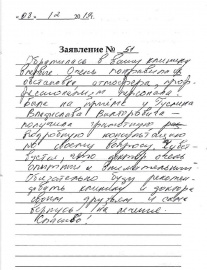 «08» 12 2018.
Заявление № 51
Обратилась в Вашу клинику
впервые. Очень понравилась
обстановка, атмосфера, проф-
ессионализм персонала.
Была на приёме у
Владислава Викторовича -
получила грамотную
подробную консультацию
по своему вопросу.
что доктор очень
опытный и внимательный.
Обязательно буду рекомен-
довать клинику и доктора
своим друзьям и сама
вернусь на лечение.
Спасибо!